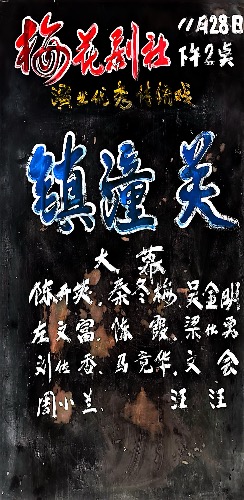 梅花剧社
11月28日
下午2点
演出优秀传统戏
镇潼关
大幕
陈升英、秦冬梅、吴金明
左文富、陈霞、梁仕勇
刘仕香、马竞华、文会
周小兰、汪汪